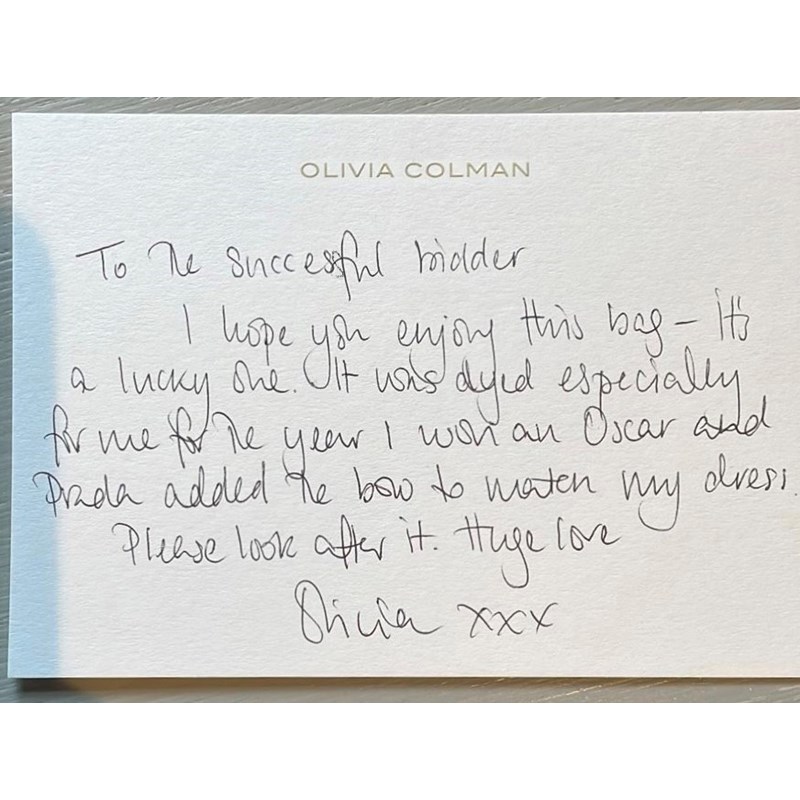 OLIVIA COLMAN
To the successful bidder
I hope you enjoy this bag – it's
a lucky one. It was dyed especially
for me for the year I won an Oscar and
Prada added the bow to match my dress.
Please look after it. Huge love
Olivia xxx